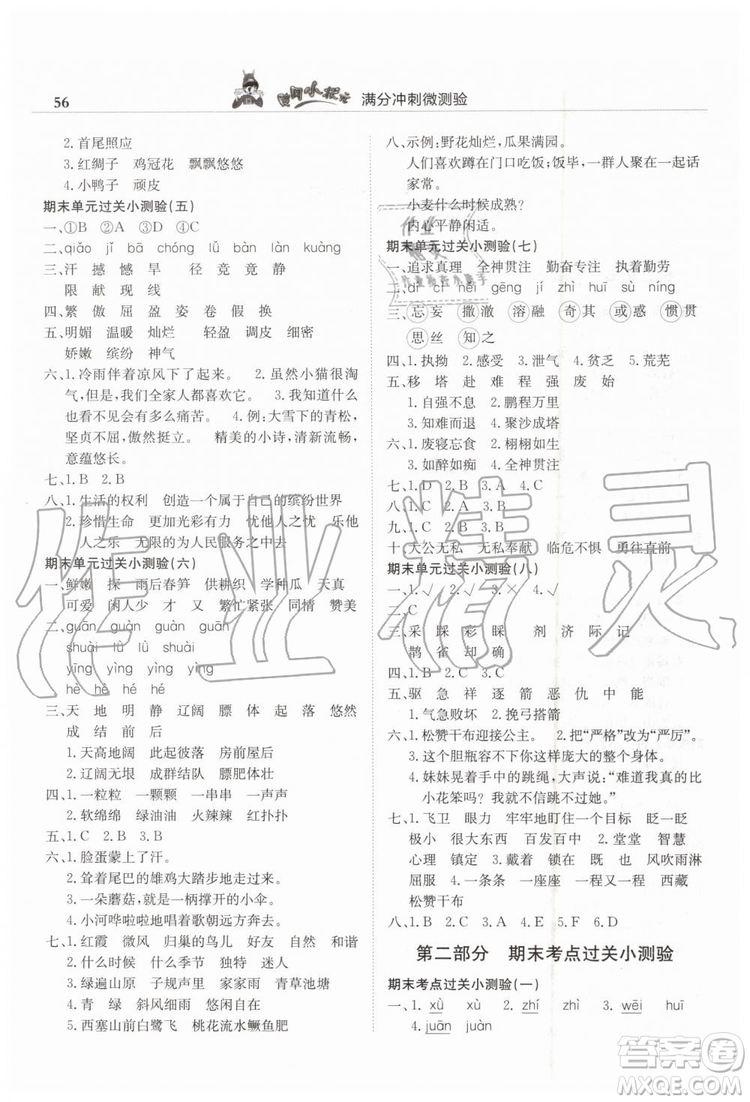 56
黄冈小状元 满分冲刺微测验
2.首尾照应
3.红绸子 鸡冠花 飘飘悠悠
4.小鸭子 顽皮
期末单元过关小测验(五)
一、①B ②A ③C
二、qiǎo jǐ bā chóng lǚ bàn lán kuàng
三、汗 撼 憾 旱 径 竞 竟 静
限 献 现 线
四、繁 傲 屈 盈 姿 卷 假 换
五、明媚 温暖 灿烂 轻盈 调皮 细密
娇嫩 缤纷 神气
六、1.冷雨伴着凉风下了起来。 2.虽然小猫很淘
气,但是,我们全家人都喜欢它。 3.我知道什么
病看不见会有多么痛苦。 4.例:大雪下的青松,
坚贞不屈,傲然挺立。 精美的小诗,清新流畅,
意蕴悠长。
七、1.B 2.B
八、1.生活的权利 创造一个属于自己的缤纷世界
2.珍惜生命 更加光彩有力 忧他人之忧 乐他
人之乐 无限的为人民服务之中去
期末单元过关小测验(六)
一、鲜嫩 探 雨后春笋 供耕织 学种瓜 天真
可爱 闲人少 才 繁忙紧张 同情 赞美
二、guān guàn guàn guān
shuài lǜ lǜ shuài
yīng yìng yìng yīng
hè hé hé hè
三、天 地 明 静 辽阔 膘 体 起 落 悠然
成 结 前 后
1.天高地阔 此起彼落 房前屋后
2.辽阔无垠 成群结队 膘肥体壮
四、1.一粒粒 一颗颗 一串串 一声声
2.软绵绵 绿油油 火辣辣 红扑扑
五、1.C 2.B 3.B
六、1.脸蛋蒙上了汗。
2.耸着尾巴的雄鸡大踏步地走来走去。
3.一朵蘑菇,就是一柄撑开的小伞。
4.小河哗啦啦地唱着歌朝远方奔去。
七、1.红霞 微风 归巢的鸟儿 好友 自然 和谐
2.什么时候 什么季节 独特 五谷 天地
3.绿遍山原 子规声里雨如烟 青草池塘
4.青 绿 形影不离 悠然自得
5.西塞山前白鹭飞 桃花流水鳜鱼肥
八、示例:野花灿烂,瓜果满园。
人们喜欢蹲在门口吃饭;饭毕,一起聚一聚,唠唠
家常。
小麦什么时候成熟?
内心平静闲适。
期末单元过关小测验(七)
一、追求真理 全神贯注 勤奋专注 执着勤劳
三、忘妄 撒澈 溶融 奇其 或惑 惯贯
思丝 知之
四、1.执拗 2.感受 3.泄气 4.贫乏 5.荒芜
五、移 塔 赴 难 程 强 废 始
1.自强不息 2.鹏程万里
3.艰难险阻 4.聚沙成塔
六、1.废寝忘食 2.栩栩如生
3.如醉如痴 4.全神贯注
九、1.C 2.B 3.A
十、大公无私 无私奉献 临危不惧 勇往直前
期末单元过关小测验(八)
二、C
三、采 踩 彩 睬 剂 济 际 记
鹊 雀 却 确
四、1.B 2.A 3.C
五、驱 急 祥 逐 箭 恶 仇 中 能
1.气急败坏 2.挽弓搭箭
六、1.松赞干布迎接公主。 2.把“严格”改为“严厉”。
3.这个胆瓶容不下你这样庞大的身子。
4.妹妹晃着手中的跳绳,大声说:“难道我真的比
小花笨吗? 我就不信跳不过她。”
七、1.飞卫 眼力 牢牢地盯住一个目标 眨一眨
极小 很大很大 百发百中 2.堂堂 智慧
心理 镇定 3.戴着 锁住 因此 风吹雨淋
屈服 4.一条条 一座座 一程又一程 西藏
松赞干布
八、1.B 2.C 3.A 4.F 5.D 6.E
第二部分 期末考点过关小测验
期末考点过关小测验(一)
一、1.xù xù 2.zhí zhǐ 3.wēi huī
4.juān juàn
作业精灵
答案圈
MXQE.COM